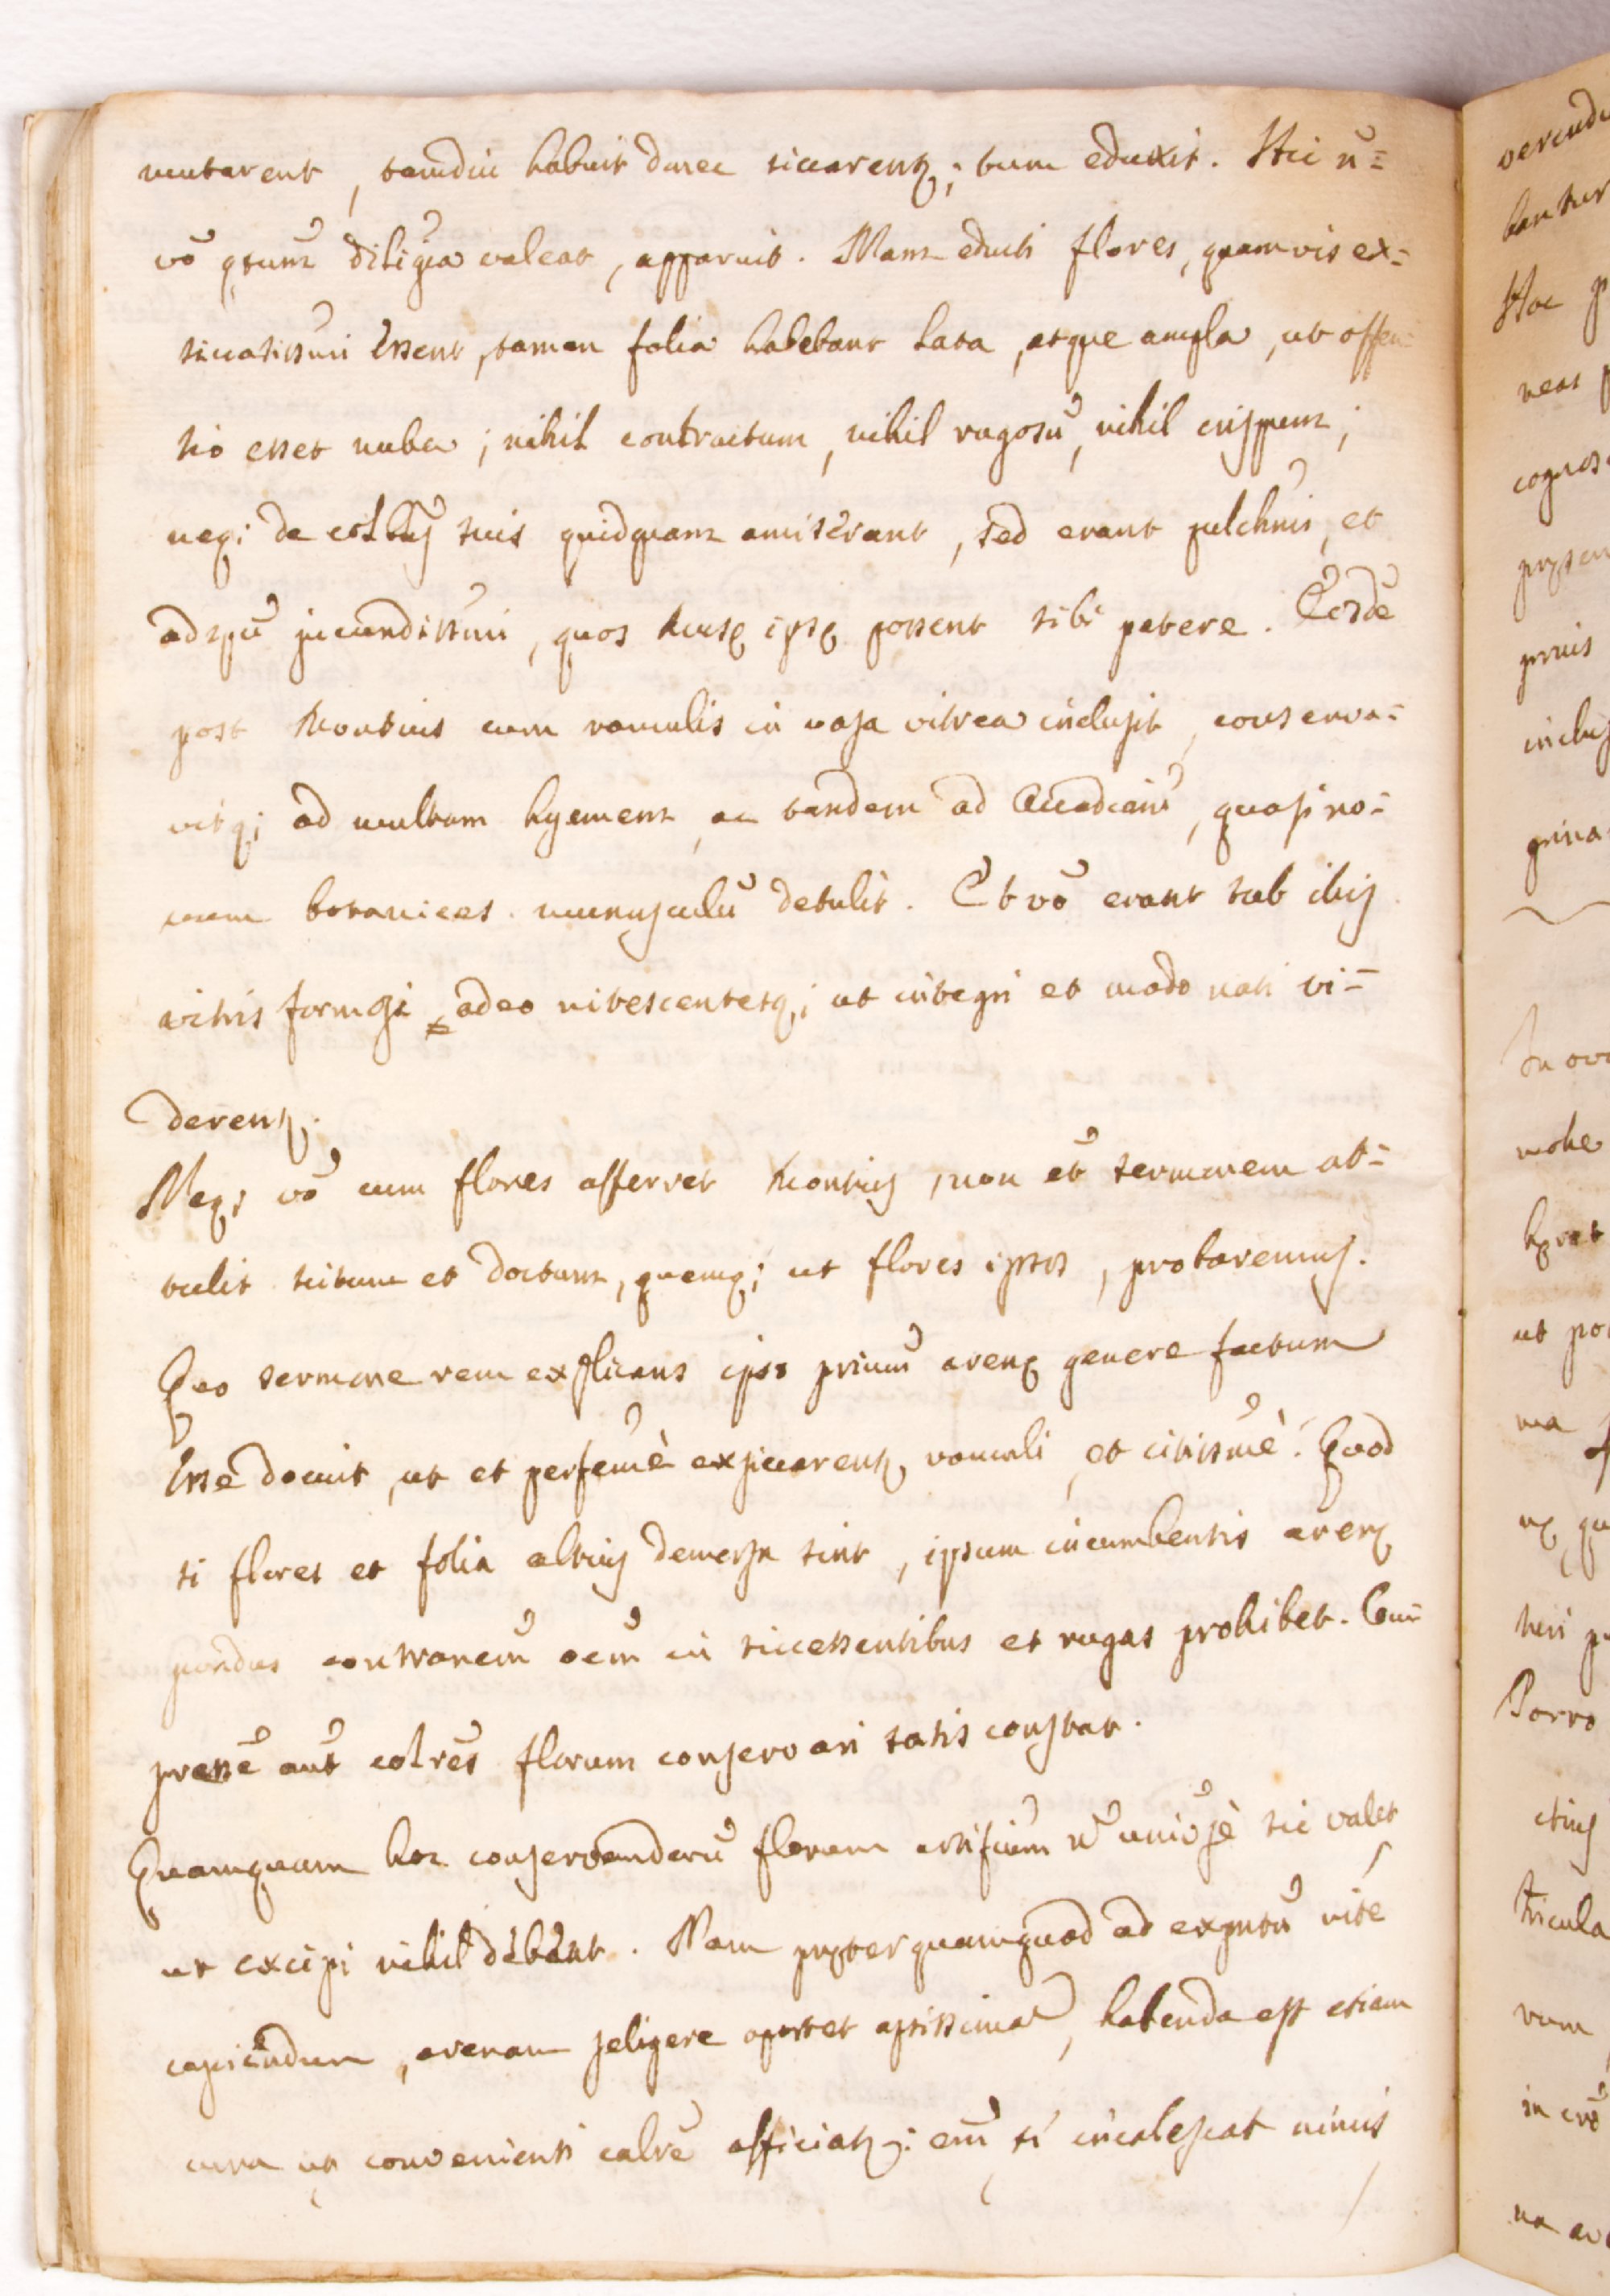 mutarent, tamdiu habuit donec siccarentʒ; tum eduxit. Hic u=
vō qtum̄ diligīa valeat, apparuit. Nam educti flores, quamvis ex=
siccatissim̄i essent, tamen folia habebant lata, atque ampla, ut offen
sio esset nulla; nihil contractum, nihil rugosū, nihil crispum;
neq; de colbꝫ suis quidquam amiserant, sed erant pulchris, et
adspū jucundissimi, quos Musę ipsę possent sibi petere. Eosdē
post Montius cum ramulis in vasa vitrea inclusit, conserva=
vitq; ad multam hyemem, ac tandem ad Accadeiā, quasi no=
vum botanices munusculū detulit. Et vō erant sub illis
vitris formosi adeo nitescentesq; ut integri et modo nati vi=
derentʒ.
Neq; vō cum flores afferret Montius, non et̄ sermonem at=
tulit scitum et doctum, quemq; ut flores ipsos, probaremus.
Quo sermone rem explicans ipso primū arenę genere factum
esse docuit, ut et perfecm̄è exsiccarentʒ ramuli, et citissm̄è. Quod
si flores et folia altius demersa sint, ipsum incumbentis arenę
pondus contraoneū oem̄ in siccessentibus et rugas prohibet. Com=
pressē aut̄ colrēs florum conservari satis constat.
Quamquam hoc conservandorū florum artificium n̄ univ̄sè sic valet
ut excipi nihil debeat. Nam pręterquamquod ad exsuctū rite
capiendum, arenam seligere oportet aptissimā, habenda est etiam
cura ut convenienti calrē afficiatʒ: em̄ si incalescat nimis